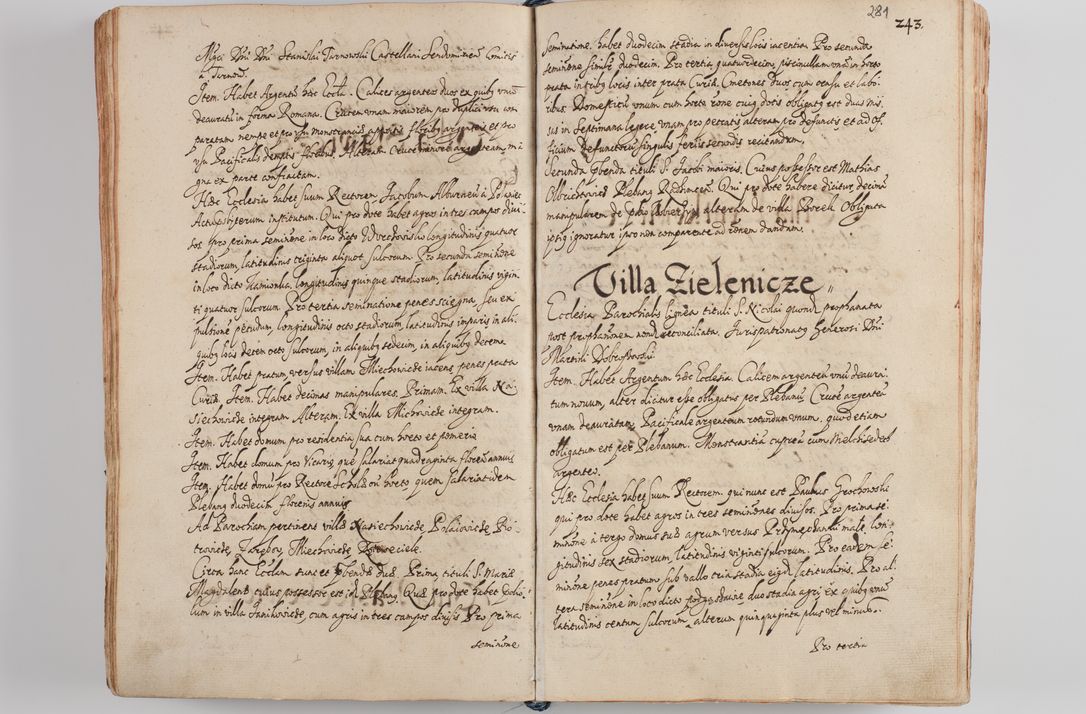 Mgci Dni Dni Stanislai Tarnowski Castellani Sendomirien Comitis
a Tarnow.
Item. Habet Argentū haec Eccla. Calices argenteos duos ex quibus unus
deauratus in forma Romana. Crucem unam maiorem per duplici usu com
paratam nempe et pro usu monstrancis appositis floribus argenteis et pro
usu Pacificalis demptis floribus. Alteram Crucē minorē argenteam, ma
gna ex parte confractam.
Haec Ecclesia habet suum Rectorem Jacobum
institutum. Qui pro dote habet agros in tres campos divi
sos pro prima seminōne in loco dicto longitudinis quatuor
stadiorum, latitudinis triginta aliquot sulcorum. Pro secunda seminōne
in loco dicto Kamionka, longitudinis quinque stadiorum, latitudinis vigin
ti quatuor sulcorum. Pro tertia seminatione penes sciegna, seu ex
pulsionē pecudum, longitudinis octo stadiorum, latitudinis imparis in ali
quibus locis decem octo sulcorum, in aliquibus sedecim, in aliquibus decem.
Item. Habet pratum versus villam Miechowicze iacens penes prata
Curiae. Item. Habet decimas manipulares. Primam. Ex villa Na
siechowicze integram. Alteram. Ex villa Miechowicze integram.
Item. Habet domum pro residentia sua cum horto et pomerio
Item. Habet domum pro Vicario, quē salariat quadraginta florenis annuis
Item. Habet domū pro Rectore Scholae cū horto quem salariat idem
Plebanus duodecim florenis annuis
Ad Parochiam pertinent villae Nasiechowicze, Polanowicze, Pio
trowicze, Miechowicze,
Circa hanc Ecclam sunt et pbendae duae. Prima tituli S. Mariae
Magdalenae cuius possessor est idē Plebanus. Quae pro dote habet
lum in villa Janikowicze, cum agris in tres campos divisis Pro prima
seminōne
281
243.
Seminatione. habet duodecim stadia in diversis locis iacentia. Pro secunda
seminōne similr duodecim. Pro tertia quatuordecim, piscinulam unā in horto
prata in tribus locis inter prata Curiae. Cmetones duos cum censu et labo
ribus. Domesticū unum cum horto rone cuius dotis obligatus est duas mis
sas in septimana legere unam pro peccatis alteram pro defunctis, et ad of
ficium defunctorū singulis feriis secundis recitandum.
Secunda pbenda tituli S. Jacobi maioris. Cuius possessor est Mathias
Plebanus. Qui pro dote habere dicitur decimā
manipularem de alteram de villa Borek. Obligata
istius ignoratur ipso non comparente ad rōnem dandam.
Villa Zielenicze
Ecclesia Parochialis lignea tituli S. Nicolai quond prophanata
post prophanōnem nond reconciliata. Jurispatronatus Generosi Dni
Martini
Item. Habet Argentum haec Ecclesia. Calicem argenteū unū deaura
tum novum, alter dicitur esse obligatus per Plebanū. Crucē argenteā
unam deauratam. Pacificale argenteum rotundum unum, quod etiam
obligatum est per Plebanum. Monstrantiā cupreā cum Melchisedech
argenteo.
Haec Ecclesia habet suum Rectorem. qui nunc est Paulus Grochowski
qui pro dote habet agros in tres seminōnes divisos. Pro prima se
minōne à tergo domus sub agrum versus lon
gitudinis sex stadiorum, latitudinis viginti sulcorum. Pro eadem se
minōne penes pratum sub vallo tria stadia eiusd. latitudinis. Pro al
tera seminōne in loco dicto duo stadia agri ex quibus unū
latitudinis centum sulcorum, alterum quinquaginta plus vel minus.
Pro tertia